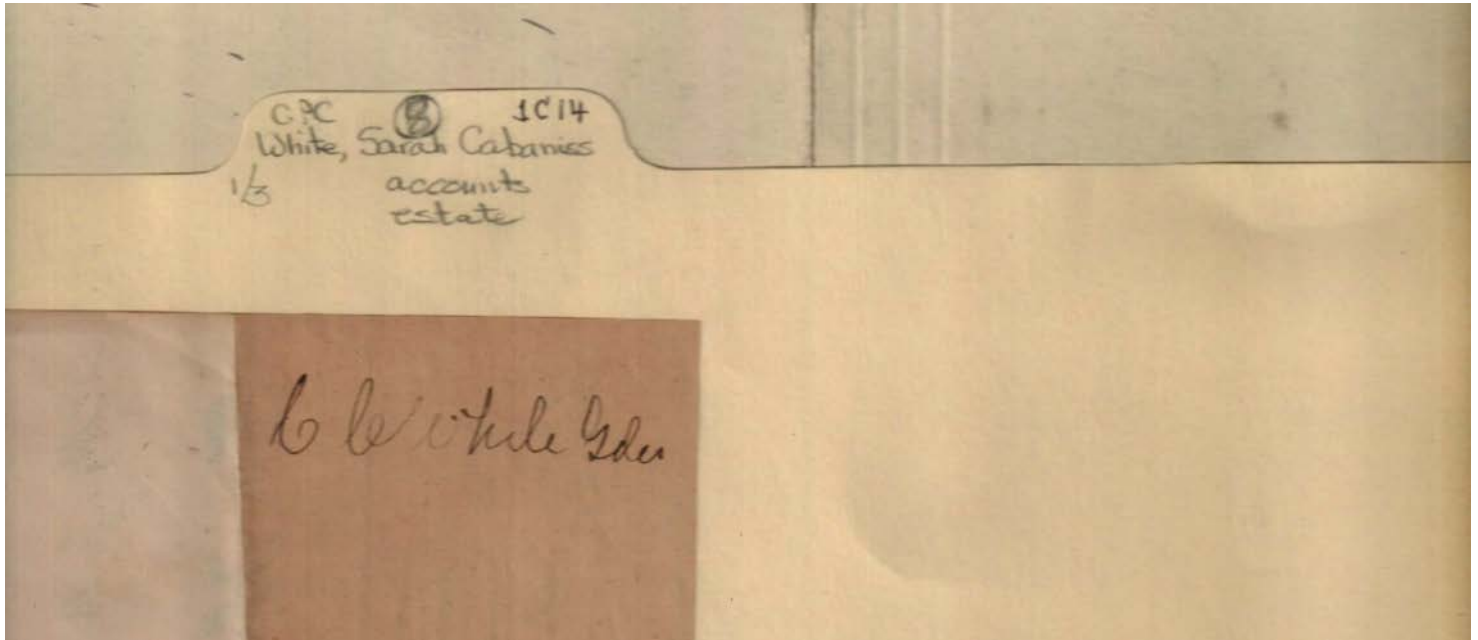 CPC 8 1C14
White, Sarah Cabaniss
1/3 accounts
estate
C C White